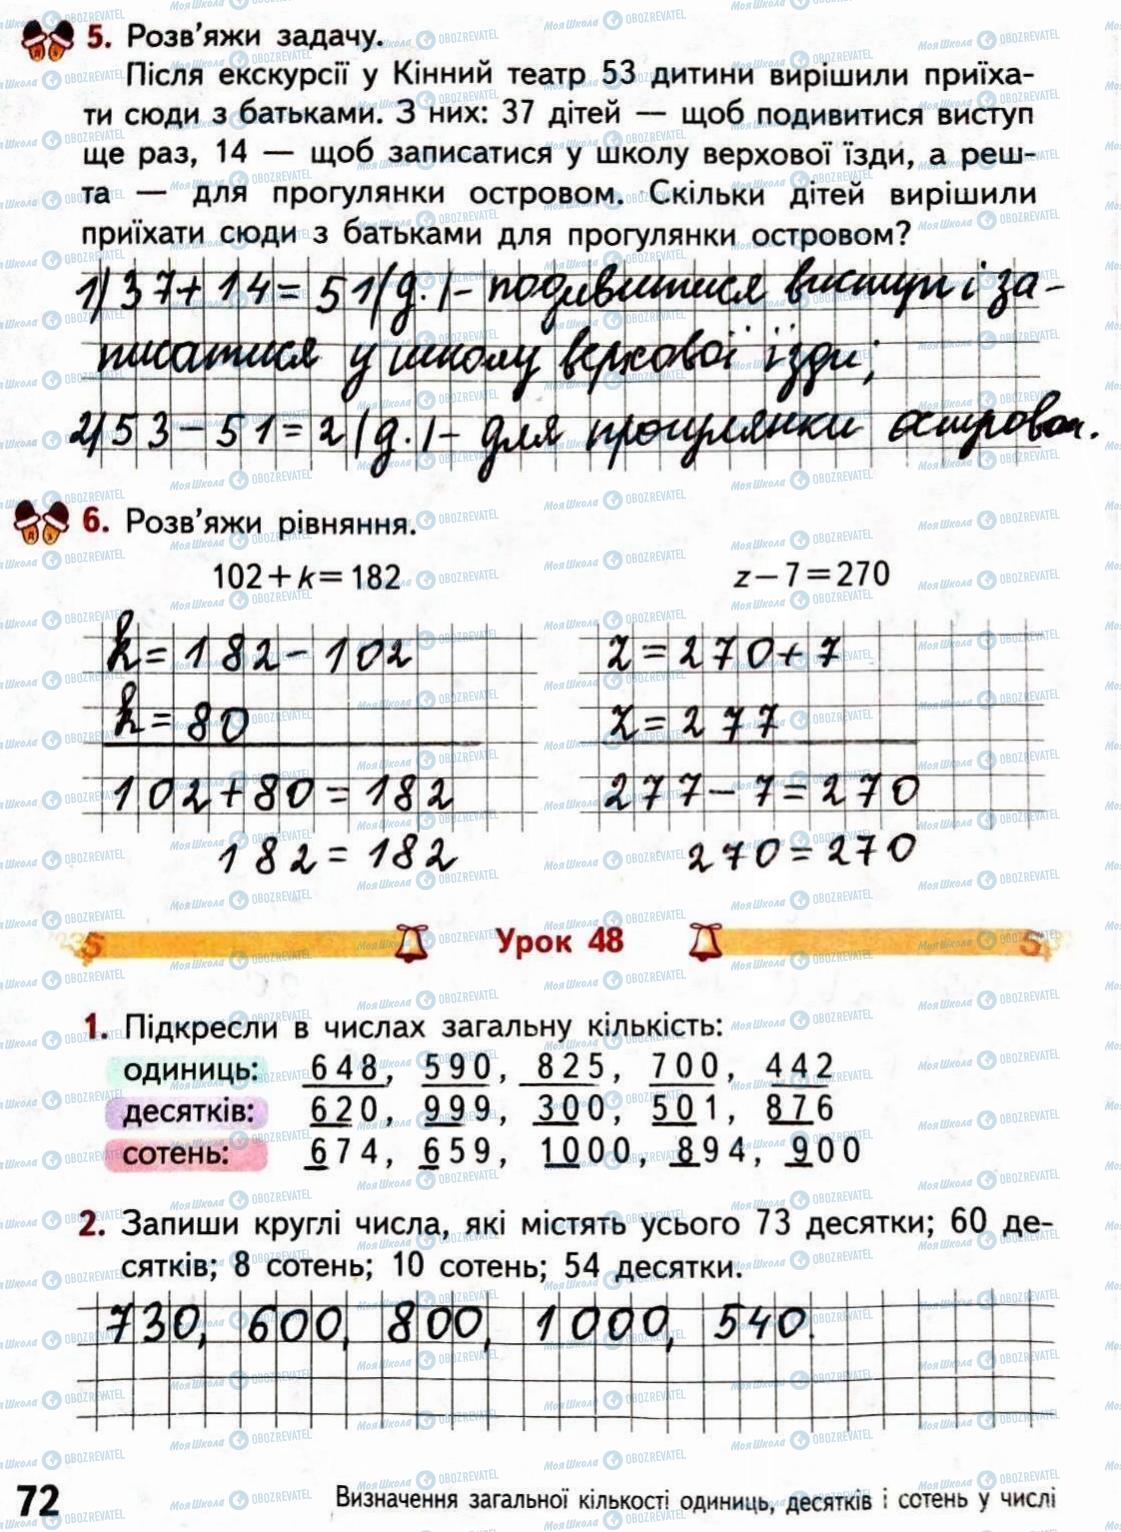 5. Розв'яжи задачу.
Після екскурсії у Кінний театр 53 дитини вирішили приїха-
ти сюди з батьками. З них: 37 дітей — щоб подивитися виступ
ще раз, 14 — щоб записатися у школу верхової їзди, а реш-
та — для прогулянки островом. Скільки дітей вирішили
приїхати сюди з батьками для прогулянки островом?
1) 37+14=51(д.)- подивитися виступ і за-
писатися у школу верхової їзди;
2) 53-51=2(д.)- для прогулянки островом.
6. Розв'яжи рівняння.
102+k=182 z-7=270
k=182-102 z=270+7
k=80 z=277
102+80=182 277-7=270
182=182 270=270
Урок 48
1. Підкресли в числах загальну кількість:
одиниць: 648, 590, 825, 700, 442
десятків: 620, 999, 300, 501, 876
сотень: 674, 659, 1000, 894, 900
2. Запиши круглі числа, які містять усього 73 десятки; 60 де-
сятків; 8 сотень; 10 сотень; 54 десятки.
730, 600, 800, 1000, 540.
72 Визначення загальної кількості одиниць, десятків і сотень у числі
МояШкола OBOZREVATEL